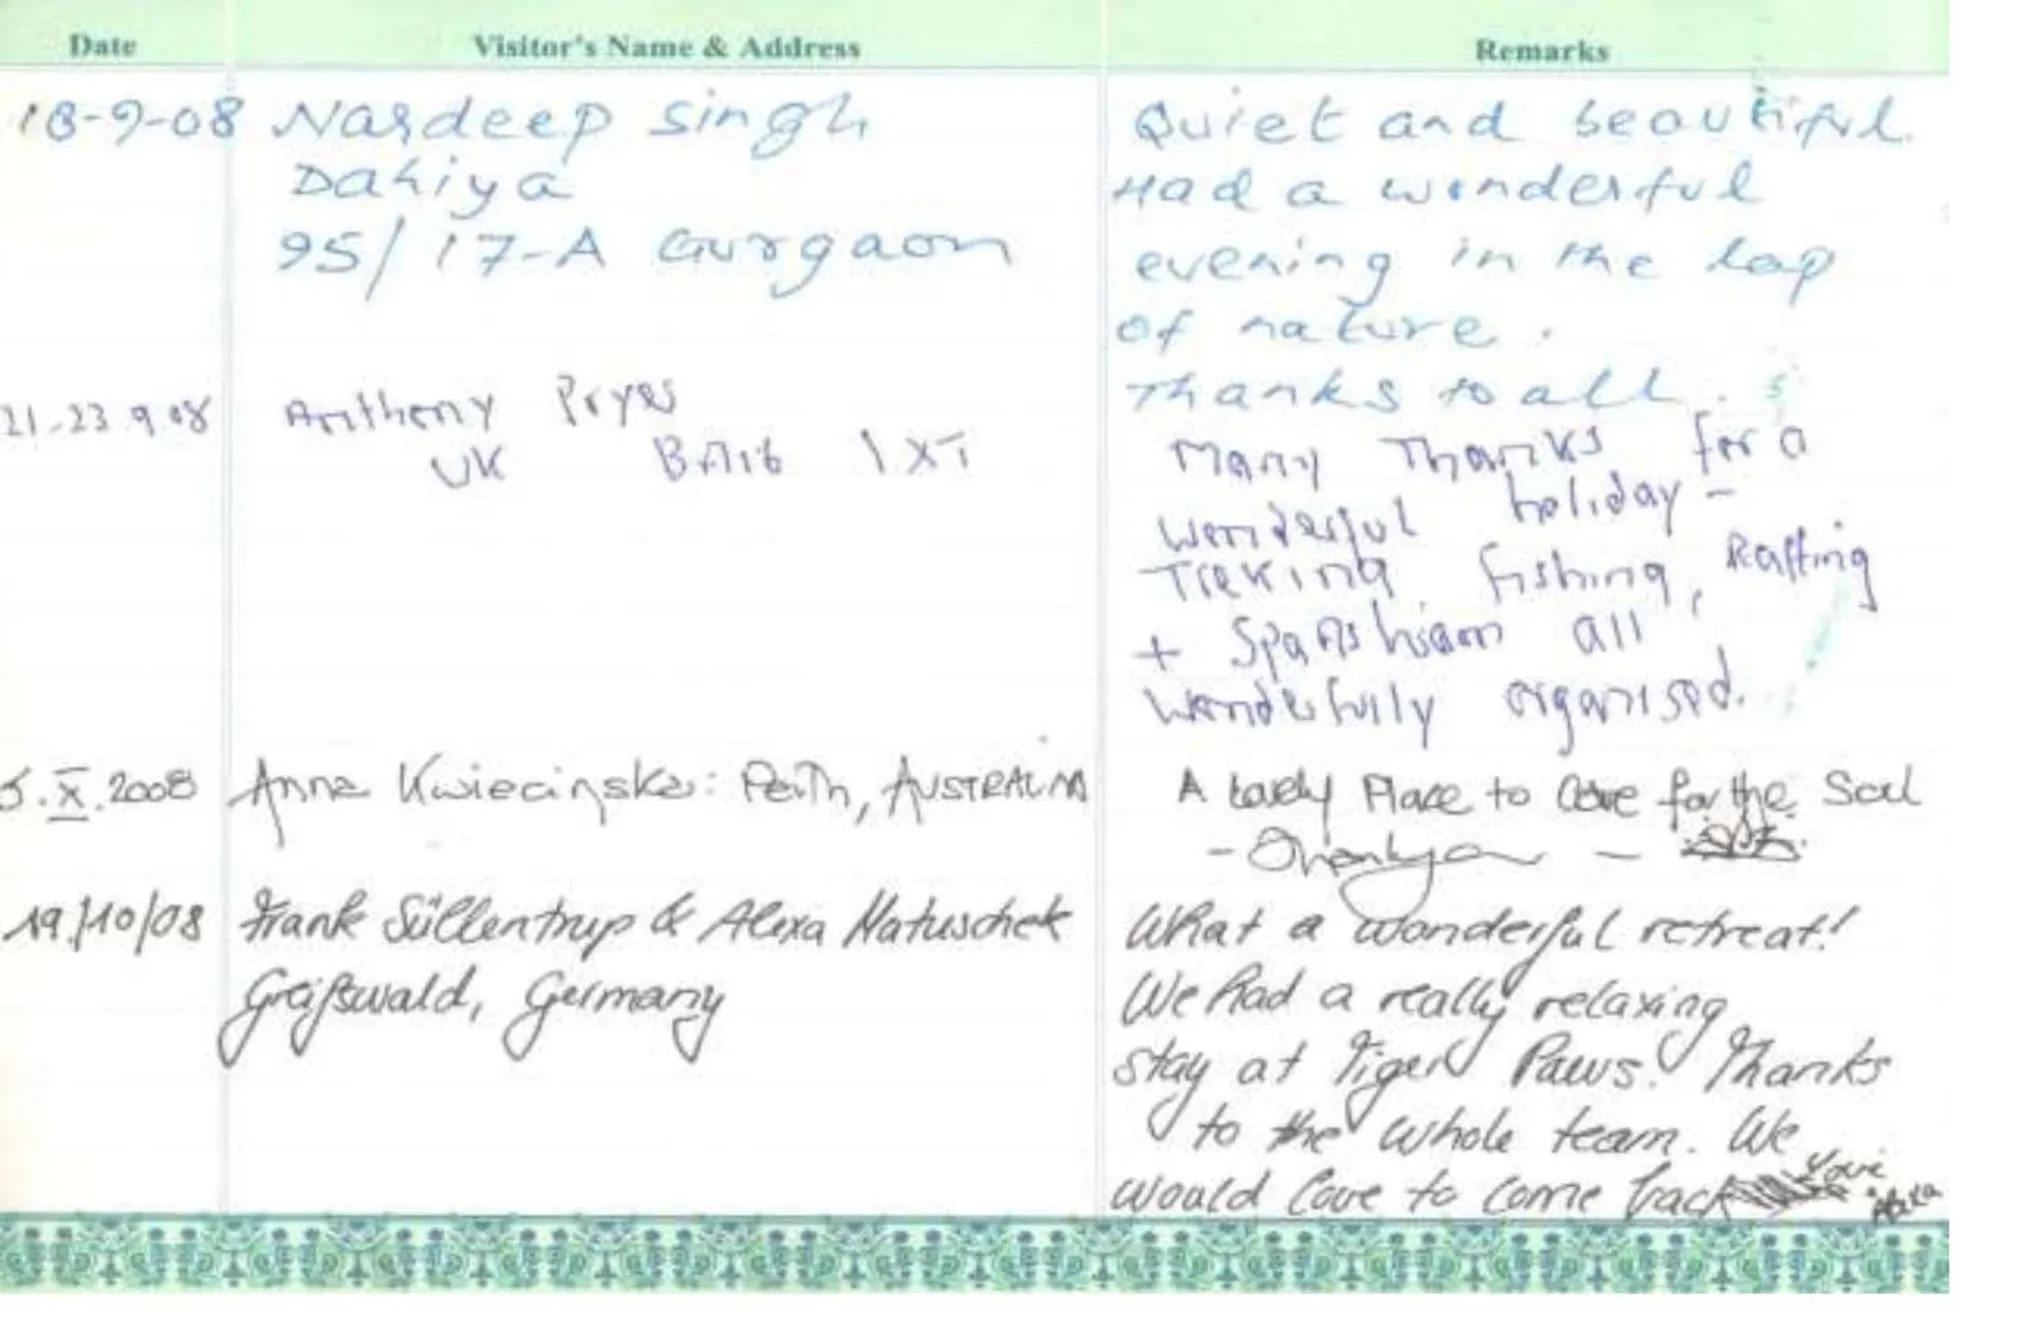 Date Visitor's Name & Address Remarks
18-9-08 Nardeep Singh
Dahiya
95/17-A Gurgaon
Quiet and beautiful.
Had a wonderful
evening in the lap
of nature.
Thanks to all.
21-23 9 08 Anthony Pryes
UK BA16 1XT
Many Thanks for a
wonderful holiday -
Treking fishing, Rafting
+ Span all
wonderfully organised.
5.X.2008 Anna Kwiecinska: Perth, AUSTRALIA
A Lovely Place to Care for the Soul
19/10/08 Frank Süllentrup & Alexa Matuschek
Greifswald, Germany
What a wonderful retreat!
We had a really relaxing
stay at Tiger Paws. Thanks
to the whole team. We
would love to come back